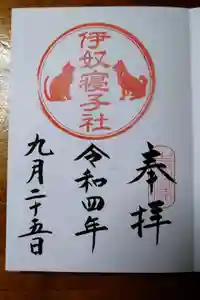 伊奴寝子社
奉拝
令和四年
九月二十五日